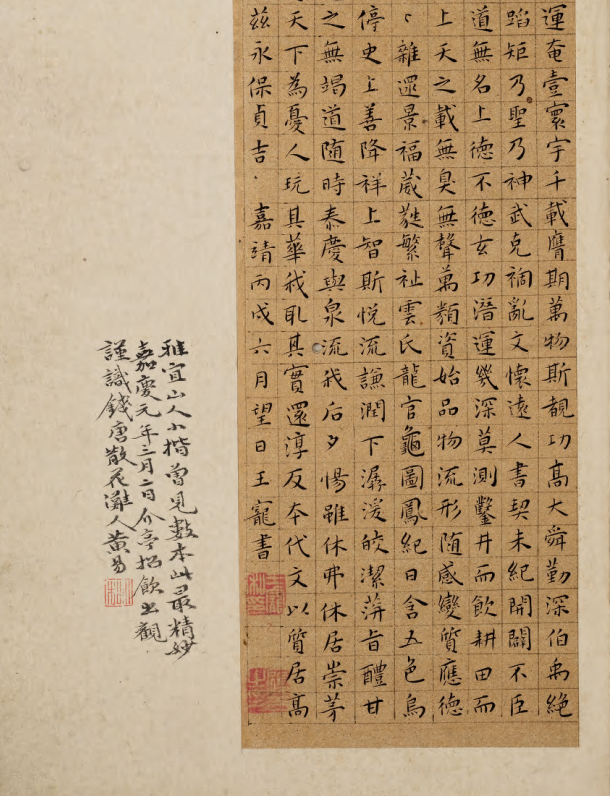 運奄壹寰宇千載膺期萬物斯覩功高大舜勤深伯禹絶
蹈矩乃聖乃神武克禍亂文懷遠人書契未紀開闢不臣
道無名上德不德玄功潛運幾深莫測鑿井而飲耕田而
上天之載無臭無聲萬類資始品物流形随感變質應德
雜遝景福葳蕤繁祉雲氏龍官龜圖鳳紀日含五色烏
停史上善降祥上智斯悦流謙潤下潺湲皎潔蓱旨醴甘
之無竭道随時泰慶與泉流我后夕惕雖休弗休居崇茅
天下為憂人玩其華我取其實還淳反本代文以質居高
兹永保貞吉 嘉靖丙戌六月望日王寵書
雅宜山人小楷曾見數本此最精妙
嘉慶元年三月二日介亭招飲出觀
謹識錢唐散花灘人黄易